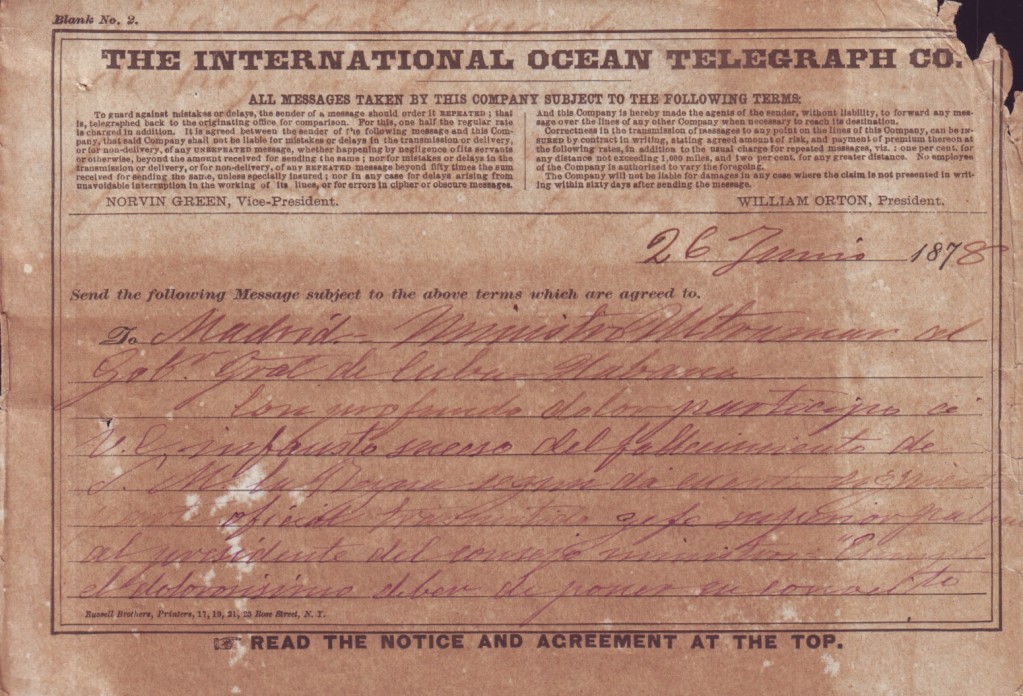 Blank No. 2.
THE INTERNATIONAL OCEAN TELEGRAPH CO.
ALL MESSAGES TAKEN BY THIS COMPANY SUBJECT TO THE FOLLOWING TERMS:
To guard against mistakes or delays, the sender of a message should order it REPEATED; that
is, telegraphed back to the originating office for comparison. For this, one half the regular rate
is charged in addition. It is agreed between the sender of the following message and this Com-
pany, that said Company shall not be liable for mistakes or delays in the transmission or delivery,
or for non-delivery, of any UNREPEATED message, whether happening by negligence of its servants
or otherwise, beyond the amount received for sending the same; nor for mistakes or delays in the
transmission or delivery, or for non-delivery, of any REPEATED message beyond fifty times the sum
received for sending the same, unless specially insured; nor in any case for delays arising from
unavoidable interruption in the working of its lines, or for errors in cipher or obscure messages.
And this Company is hereby made the agents of the sender, without liability, to forward any mes-
sage over the lines of any other Company when necessary to reach its destination.
Correctness in the transmission of messages to any point on the lines of this Company, can be IN-
SURED by contract in writing, stating agreed amount of risk, and payment of premium thereon at
the following rates, in addition to the usual charge for repeated messages, viz.: one per cent. for
any distance not exceeding 1,000 miles, and two per cent. for any greater distance. No employee
of the Company is authorized to vary the foregoing.
The Company will not be liable for damages in any case where the claim is not presented in writ-
ing within sixty days after sending the message.
NORVIN GREEN, Vice-President.
WILLIAM ORTON, President.
26 Junio 1878
Send the following Message subject to the above terms which are agreed to.
To Madrid.- Ministro Ultramar al
Gobr. Gral de Cuba - Habana
Con profundo dolor participo á
V. E. infausto suceso del fallecimiento de
S. M. la Reyna segun da cuenta
oficial trasmitido gefe superior
al presidente del consejo ministros - "Tengo
el dolorosisimo deber de poner en
Russell Brothers, Printers, 17, 19, 21, 23 Rose Street, N. Y.
☞ READ THE NOTICE AND AGREEMENT AT THE TOP.